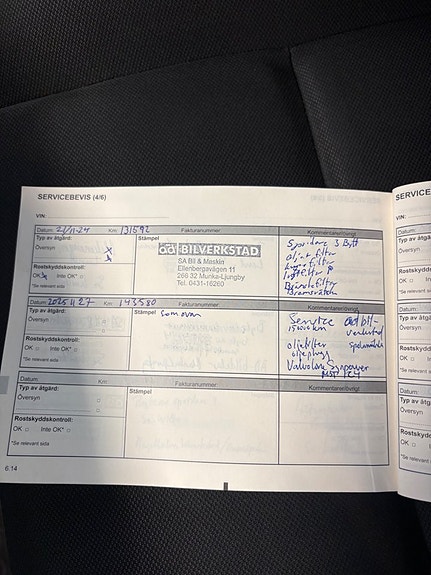 SERVICEBEVIS (4/6)
VIN:
Datum: Km: 131592 Fakturanummer: Kommentarer/övrigt
Typ av åtgärd: Stämpel
Översyn
Rostskyddskontroll:
OK Inte OK*
*Se relevant sida
ad BILVERKSTAD
SA Bil & Maskin
Ellenbergavägen 11
266 32 Munka-Ljungby
Tel. 0431-16260
3 Bytt
oljefilter
Bränslefilter
Bromsvätska
Datum: 2025 11 27 Km: 143580 Fakturanummer: Kommentarer/övrigt
Typ av åtgärd: Stämpel som ovan
Översyn
Rostskyddskontroll:
OK Inte OK*
*Se relevant sida
Service
15000 km
oljefilter
oljeplugg
Valvoline Synpower
Datum: Km: Fakturanummer: Kommentarer/övrigt
Typ av åtgärd: Stämpel
Översyn
Rostskyddskontroll:
OK Inte OK*
*Se relevant sida
6.14
SERVICEB
VIN:
Datum:
Typ av åt
Översyn
Rostskydd
OK
*Se relevan
Datum:
Typ av å
Översyn
Rostsky
OK
*Se relev
Datum:
Typ av
Översyn
Rostsk
OK
*Se rele